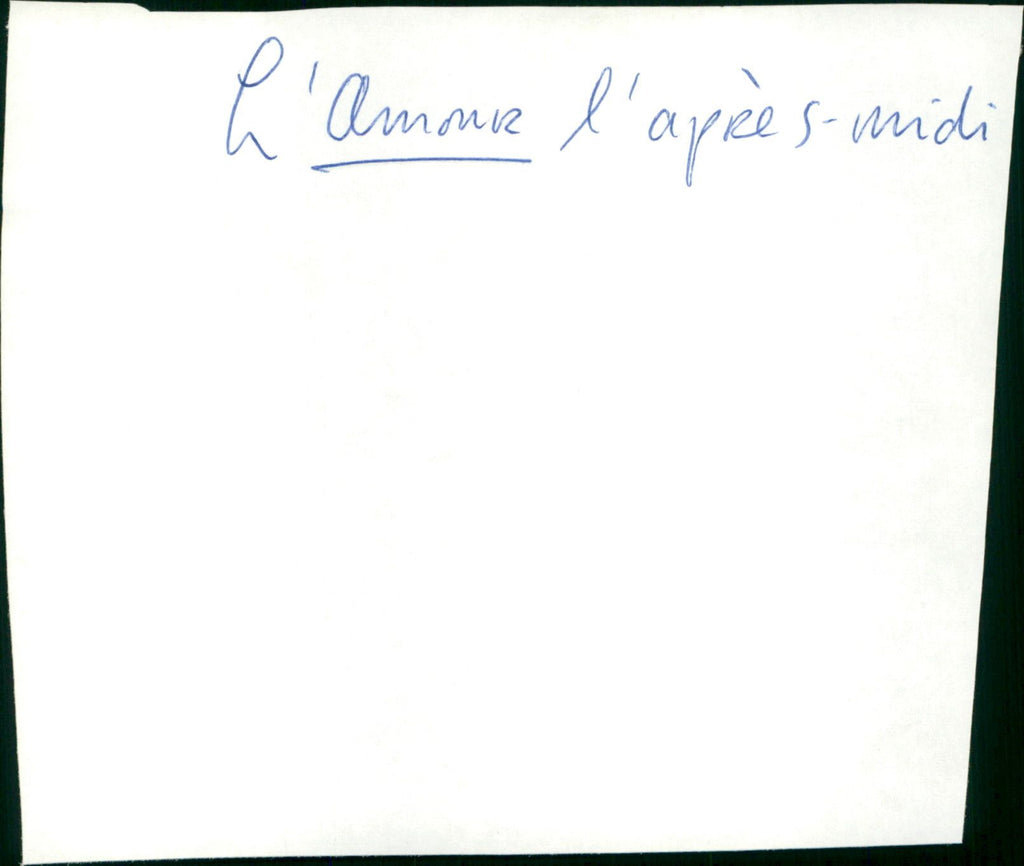 L'Amour l'après-midi